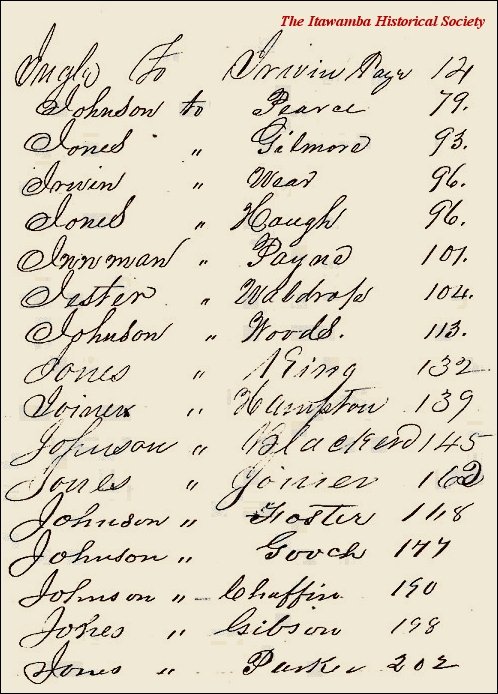 The Itawamba Historical Society
Ingle To Irwin Page 14
Johnson to Pearce 79.
Jones " Gilmore 93.
Irwin " Wear 96.
Jones " Haugh 96.
Innman " Payne 101.
Jester " Waldrop 104.
Johnson " Woods. 113.
Jones " King 132
Joiner " Hampton 139
Johnson " 145
Jones " Joiner 162
Johnson " Foster
Johnson " Gooch 177
Johnson " Chaffin 190
Jones " Gibson 198
Jones " Parker 202